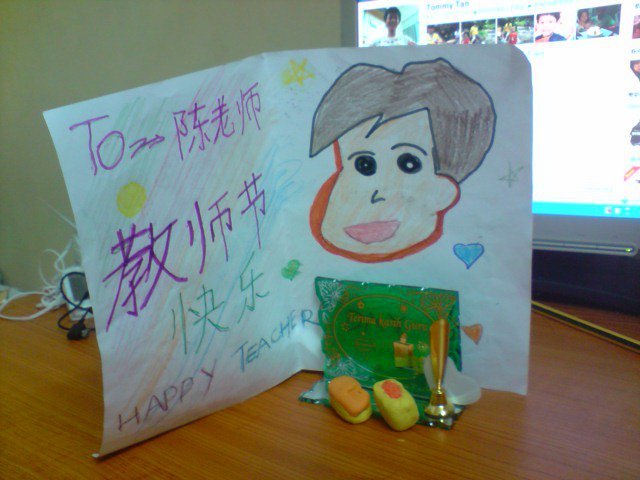 Tommy Tan
TO 陈老师
教师节
快乐
HAPPY TEACHER
Terima Kasih Guru